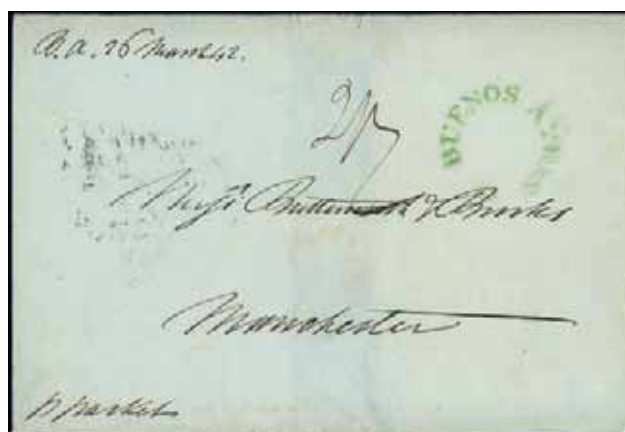 B.A. 26 March 42.
BUENOS AYRES
2/7
Mess.rs Butterworth & Brooks
Manchester
p packet